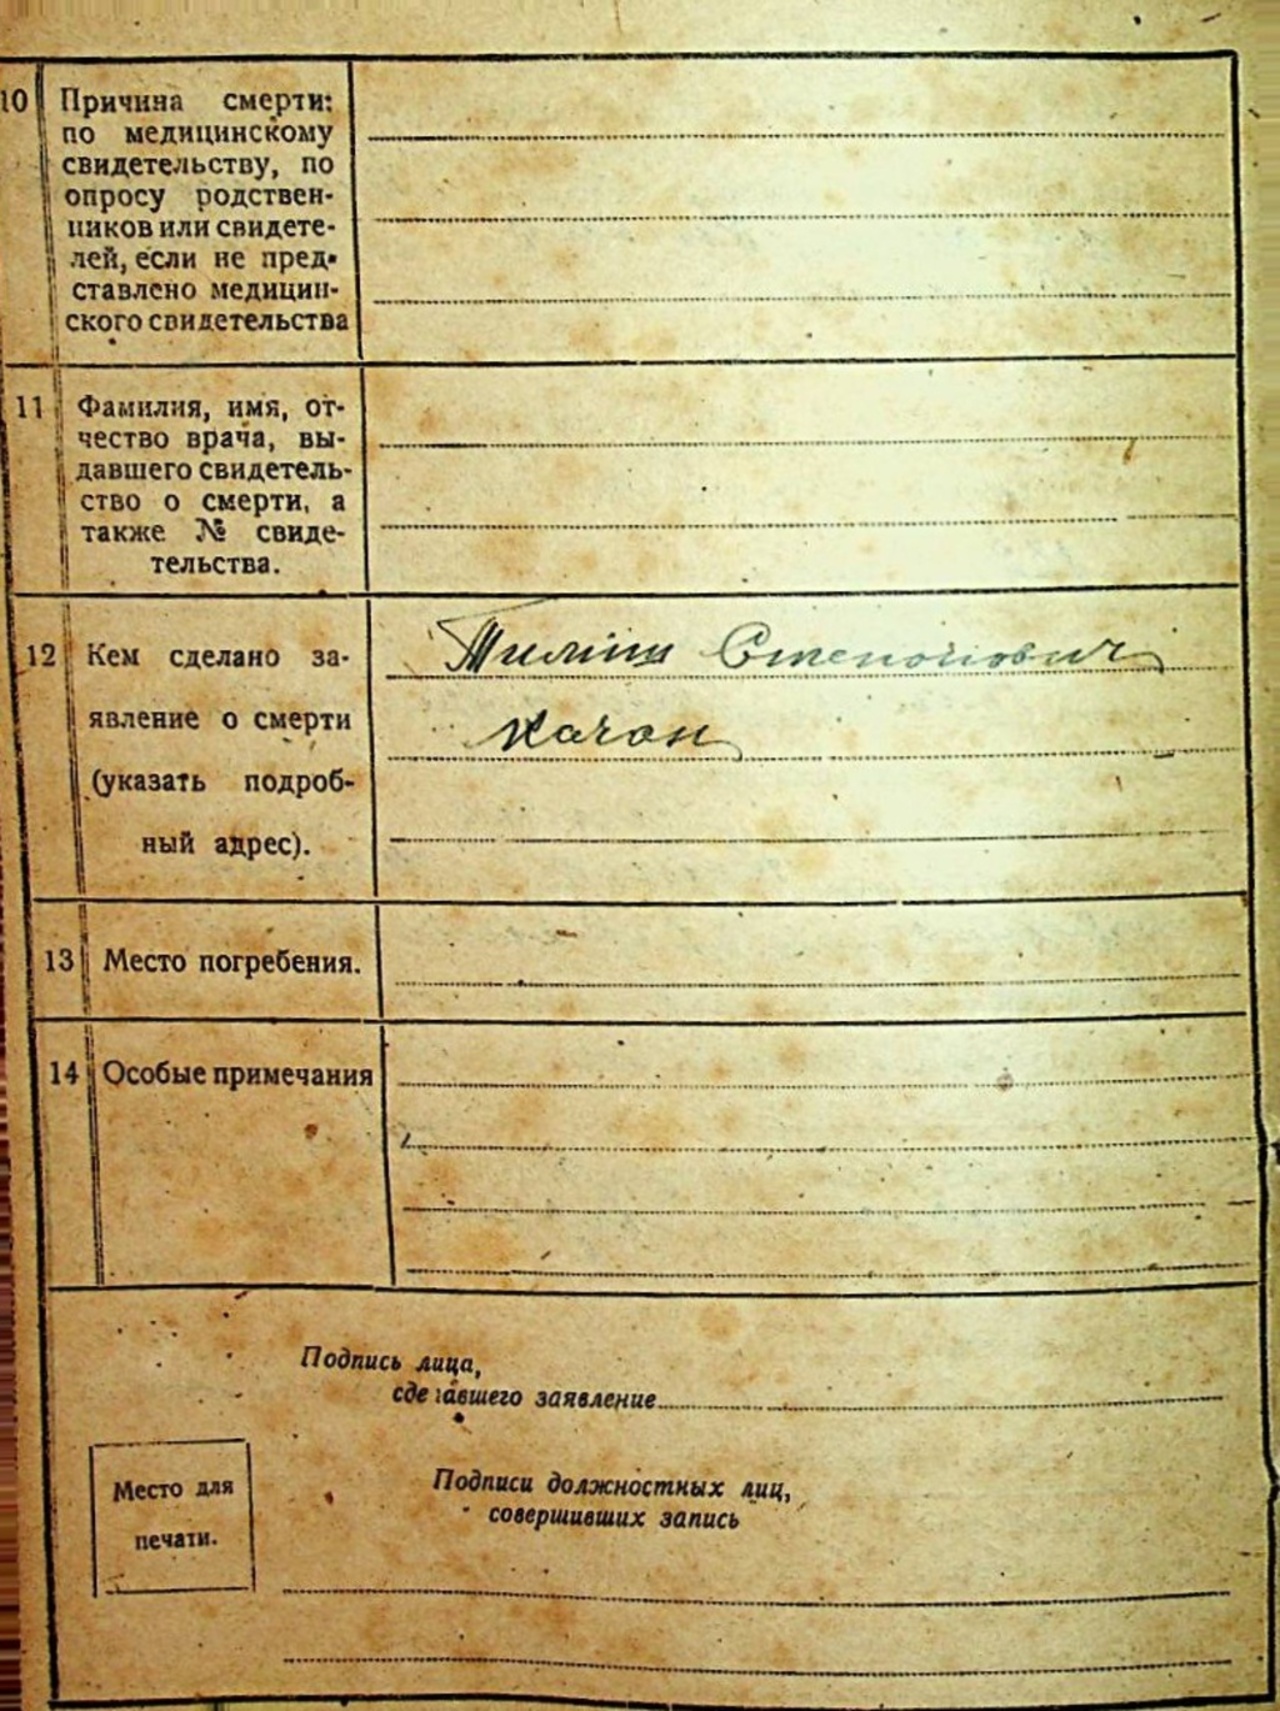 10 Причина смерти:
по медицинскому
свидетельству, по
опросу родствен-
ников или свидете-
лей, если не пред-
ставлено медицин-
ского свидетельства
11 Фамилия, имя, от-
чество врача, вы-
давшего свидетель-
ство о смерти, а
также № свиде-
тельства.
12 Кем сделано за-
явление о смерти
(указать подроб-
ный адрес).
Степонович
Качан
13 Место погребения.
14 Особые примечания
Подпись лица,
сделавшего заявление
Подписи должностных лиц,
совершивших запись
Место для
печати.